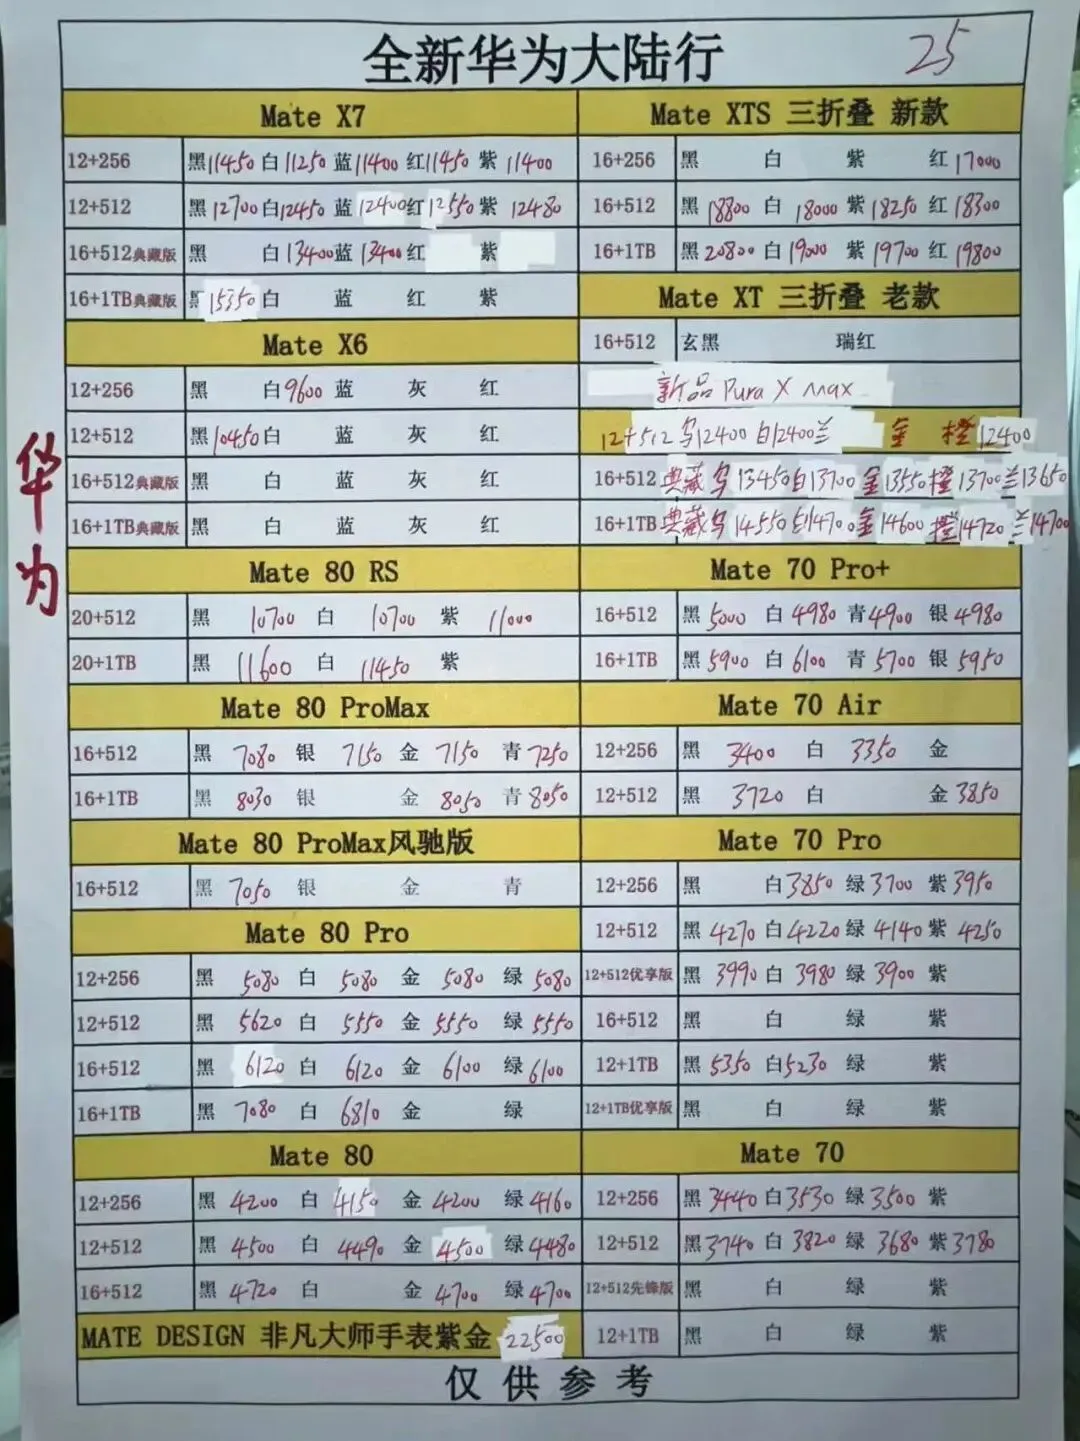 全新华为大陆行 25
华为
Mate X7
12+256 黑11450 白11250 蓝11400 红11450 紫11400
12+512 黑12700 白12450 蓝12400 红12550 紫12480
16+512典藏版 黑 白13400 蓝13400 红 紫
16+1TB典藏版 黑15350 白 蓝 红 紫
Mate X6
12+256 黑 白9600 蓝 灰 红
12+512 黑10450 白 蓝 灰 红
16+512典藏版 黑 白 蓝 灰 红
16+1TB典藏版 黑 白 蓝 灰 红
Mate 80 RS
20+512 黑 10700 白 10700 紫 11000
20+1TB 黑 11600 白 11450 紫
Mate 80 ProMax
16+512 黑 7080 银 7150 金 7150 青 7250
16+1TB 黑 8030 银 金 8050 青 8050
Mate 80 ProMax风驰版
16+512 黑 7050 银 金 青
Mate 80 Pro
12+256 黑 5080 白 5080 金 5080 绿 5080
12+512 黑 5620 白 5550 金 5550 绿 5550
16+512 黑 6120 白 6120 金 6100 绿 6100
16+1TB 黑 7080 白 6810 金 绿
Mate 80
12+256 黑 4200 白 4150 金 4200 绿 4160
12+512 黑 4500 白 4490 金 4500 绿 4480
16+512 黑 4720 白 金 4700 绿 4700
MATE DESIGN 非凡大师手表紫金 22500
Mate XTS 三折叠 新款
16+256 黑 白 紫 红17000
16+512 黑 18800 白 18000 紫 18250 红 18300
16+1TB 黑 20800 白 19000 紫 19700 红 19800
Mate XT 三折叠 老款
16+512 玄黑 瑞红
新品 Pura X max
12+512 乌12400 白12400 兰 金 橙 12400
16+512 典藏 乌 13450 白13700 金13550 橙13700 兰13650
16+1TB 典藏 乌 14550 白14700 金14600 橙14720 兰14700
Mate 70 Pro+
16+512 黑 5000 白 4980 青 4900 银 4980
16+1TB 黑 5900 白 6100 青 5700 银 5950
Mate 70 Air
12+256 黑 3400 白 3350 金
12+512 黑 3720 白 金 3850
Mate 70 Pro
12+256 黑 白3850 绿3700 紫3950
12+512 黑 4270 白4220 绿 4140 紫 4250
12+512优享版 黑 3990 白 3980 绿 3900 紫
16+512 黑 白 绿 紫
12+1TB 黑 5350 白5230 绿 紫
12+1TB优享版 黑 白 绿 紫
Mate 70
12+256 黑3440 白3530 绿3500 紫
12+512 黑3740 白 3820 绿 3680 紫 3780
12+512先锋版 黑 白 绿 紫
12+1TB 黑 白 绿 紫
仅供参考